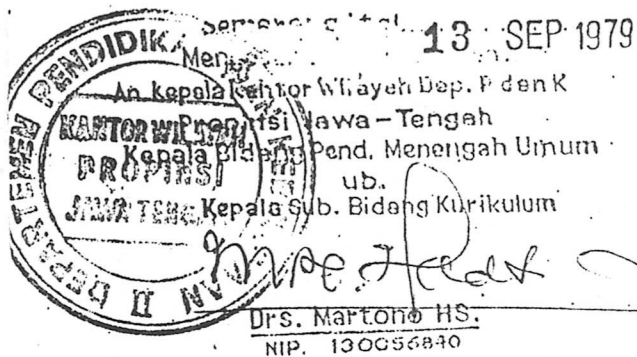 13 SEP 1979
An. kepala Kantor Wilayah Dep. P dan K
Propinsi Jawa - Tengah
Kepala Bidang Pend. Menengah Umum
ub.
Kepala Sub. Bidang Kurikulum
Drs. Martono HS.
NIP. 130056840
DEPARTEMEN PENDIDIKAN
KANTOR WILAYAH
PROPINSI
JAWA TENGAH